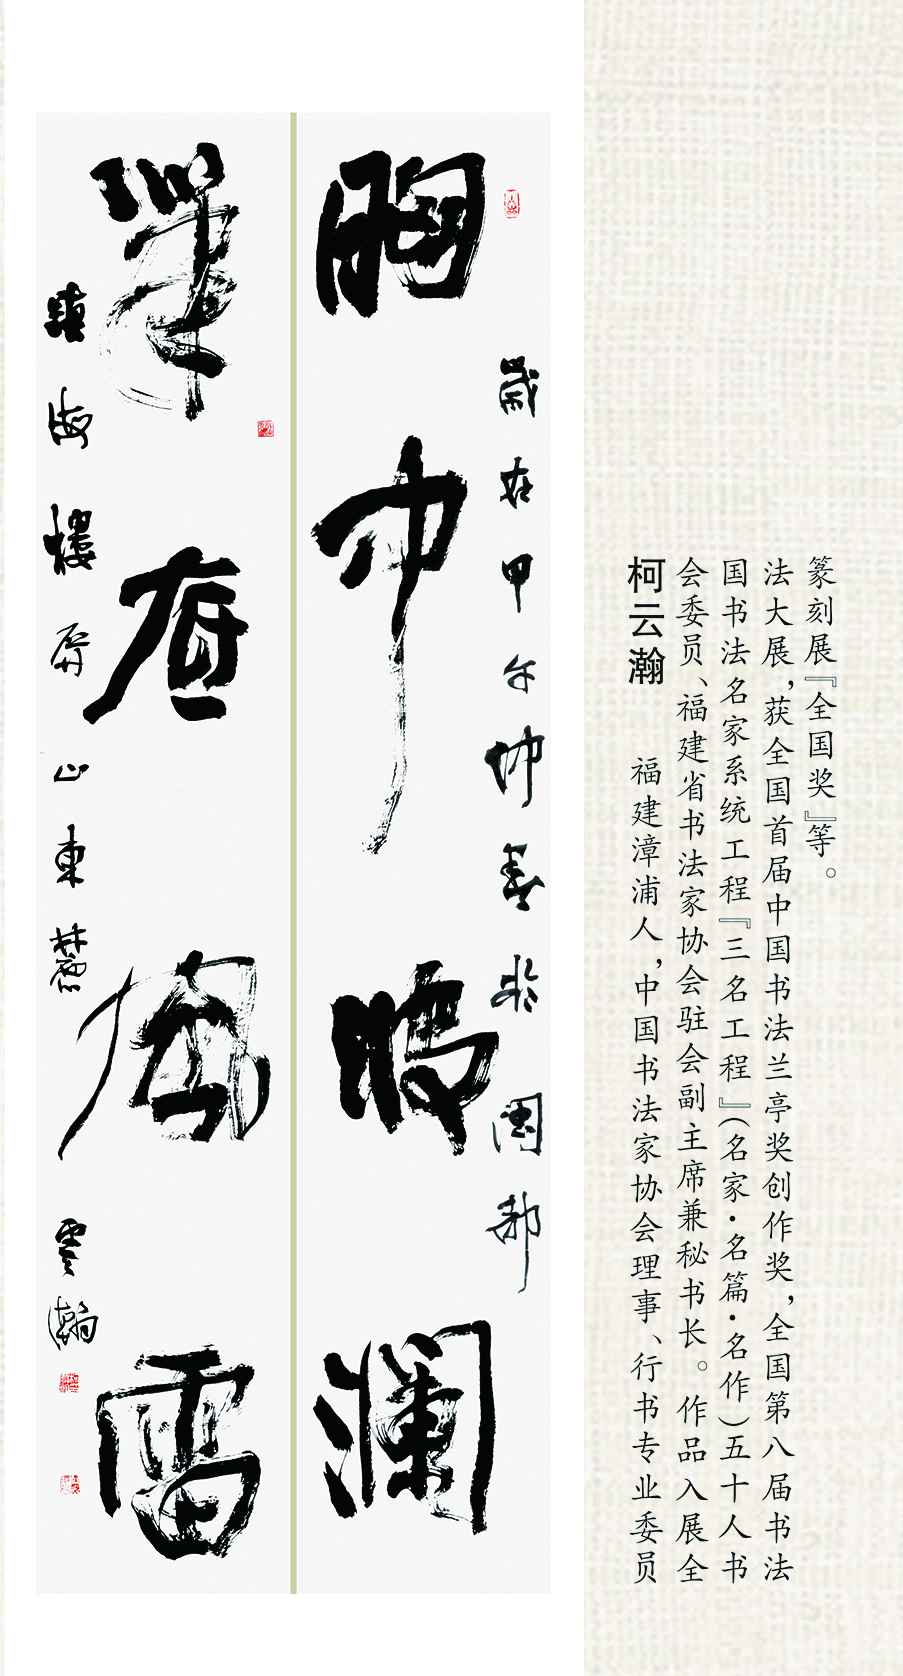 胸中波瀾
歲在甲午仲春於閩都
筆底風雷
鎮海樓屏山東麓 雲瀚
柯云瀚 福建漳浦人，中国书法家协会理事、行书专业委员
会委员、福建省书法家协会驻会副主席兼秘书长。作品入展全
国书法名家系统工程『三名工程』(名家·名篇·名作)五十人书
法大展，获全国首届中国书法兰亭奖创作奖，全国第八届书法
篆刻展『全国奖』等。